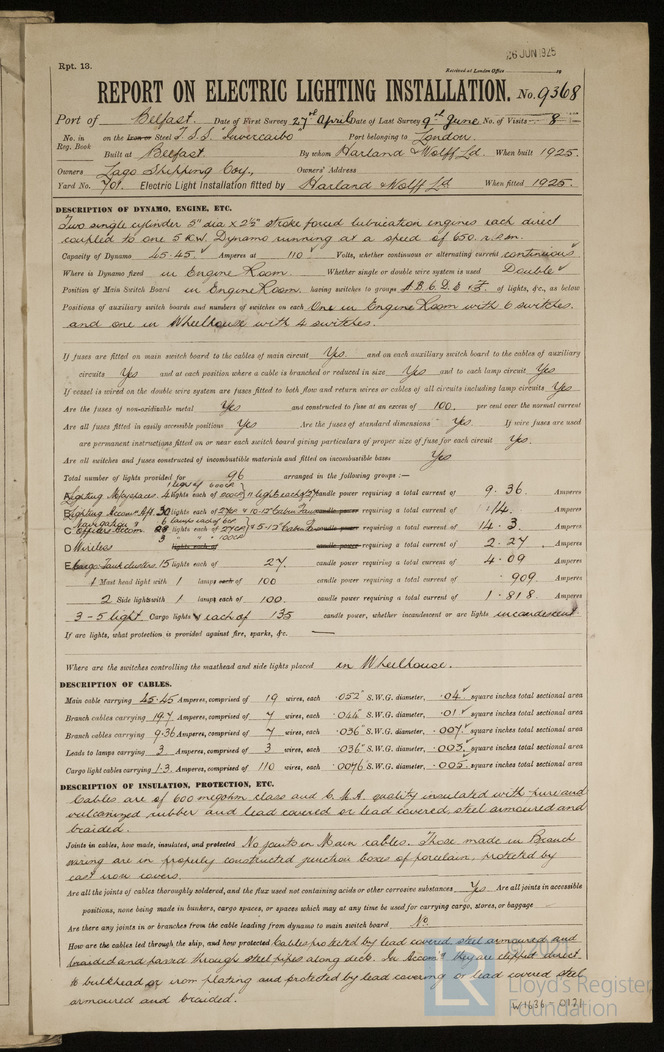 26 JUN 1925
Rpt. 13.
Received at London Office
REPORT ON ELECTRIC LIGHTING INSTALLATION. No. 9368
Port of Belfast. Date of First Survey 27th April Date of Last Survey 9th June No. of Visits 8
No. in Reg. Book on the Iron or Steel T.S.S. "Invercaibo" Port belonging to London.
Built at Belfast. By whom Harland & Wolff Ld. When built 1925.
Owners Lago Shipping Coy., Owners' Address
Yard No. 701. Electric Light Installation fitted by Harland & Wolff Ld When fitted 1925.
DESCRIPTION OF DYNAMO, ENGINE, ETC.
Two single cylinder 5" dia x 2½" stroke forced lubrication engines each direct
coupled to one 5 K.W. Dynamo running at a speed of 650. r.p.m.
Capacity of Dynamo 45.45. Amperes at 110 Volts, whether continuous or alternating current continuous
Where is Dynamo fixed in Engine Room. Whether single or double wire system is used Double
Position of Main Switch Board in Engine Room. having switches to groups A.B.C.D.E & F. of lights, &c., as below
Positions of auxiliary switch boards and numbers of switches on each One in Engine Room with 6 switches.
and one in Wheelhouse with 4 switches.
If fuses are fitted on main switch board to the cables of main circuit Yes. and on each auxiliary switch board to the cables of auxiliary
circuits Yes and at each position where a cable is branched or reduced in size Yes and to each lamp circuit Yes
If vessel is wired on the double wire system are fuses fitted to both flow and return wires or cables of all circuits including lamp circuits Yes
Are the fuses of non-oxidizable metal Yes and constructed to fuse at an excess of 100. per cent over the normal current
Are all fuses fitted in easily accessible positions Yes Are the fuses of standard dimensions Yes. If wire fuses are used
are permanent instructions fitted on or near each switch board giving particulars of proper size of fuse for each circuit Yes.
Are all switches and fuses constructed of incombustible materials and fitted on incombustible bases Yes
Total number of lights provided for 96 arranged in the following groups :—
A Lighting Mchy spaces 4 lights each of candle power requiring a total current of 9.36. Amperes
B Lighting Accom Aft. 30 lights each of candle power requiring a total current of 14. Amperes
C Navigation & Officers Accom. lights each of candle power requiring a total current of 14.3. Amperes
D Wireless lights each of candle power requiring a total current of 2.27 Amperes
E Cargo Tank clusters. 15 lights each of 27. candle power requiring a total current of 4.09 Amperes
1 Mast head light with 1 lamps each of 100 candle power requiring a total current of .909. Amperes
2 Side lights with 1 lamps each of 100. candle power requiring a total current of 1.818. Amperes
3 - 5 light Cargo lights each of 135 candle power, whether incandescent or arc lights incandescent.
If arc lights, what protection is provided against fire, sparks, &c. —
Where are the switches controlling the masthead and side lights placed in Wheelhouse.
DESCRIPTION OF CABLES.
Main cable carrying 45.45 Amperes, comprised of 19 wires, each .052" S.W.G. diameter, .04 square inches total sectional area
Branch cables carrying 19.7 Amperes, comprised of 7 wires, each .044" S.W.G. diameter, .01 square inches total sectional area
Branch cables carrying 9.36 Amperes, comprised of 7 wires, each .036" S.W.G. diameter, .007 square inches total sectional area
Leads to lamps carrying 3 Amperes, comprised of 3 wires, each .036" S.W.G. diameter, .003. square inches total sectional area
Cargo light cables carrying 1.3 Amperes, comprised of 110 wires, each .0076 S.W.G. diameter, .005. square inches total sectional area
DESCRIPTION OF INSULATION, PROTECTION, ETC.
Cables are of 600 megohm class and C.M.A. quality insulated with pure and
vulcanized rubber and lead covered or lead covered, steel armoured and
braided.
Joints in cables, how made, insulated, and protected No joints in Main cables. Those made in Branch
wiring are in properly constructed junction boxes of porcelain, protected by
cast iron covers.
Are all the joints of cables thoroughly soldered, and the flux used not containing acids or other corrosive substances Yes Are all joints in accessible
positions, none being made in bunkers, cargo spaces, or spaces which may at any time be used for carrying cargo, stores, or baggage
Are there any joints in or branches from the cable leading from dynamo to main switch board No.
How are the cables led through the ship, and how protected Cables protected by lead covered, steel armoured and
braided and passed through steel pipes along deck. In Accom they are clipped direct
to bulkhead or iron plating and protected by lead covering or lead covered steel
armoured and braided.
LR
Lloyd's Register
Foundation
W1636-0171